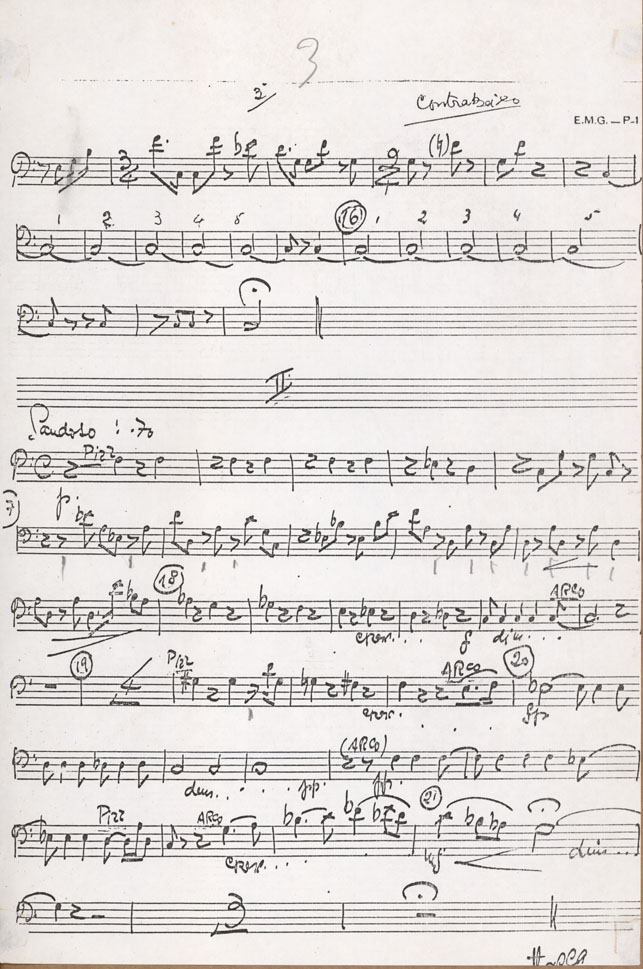 3
3ª Contrabaixo
E.M.G. — P-1
1 2 3 4 5 16 1 2 3 4 5
II
70
Pizz
p.
18 ARCO
cresc. . . f dim. . . .
19 Pizz ARCO 20
cresc. . . . fp
(ARCO)
dim. . . . pp. fp.
Pizz ARCO 21
cresc. . . . mf dim. . . .
3